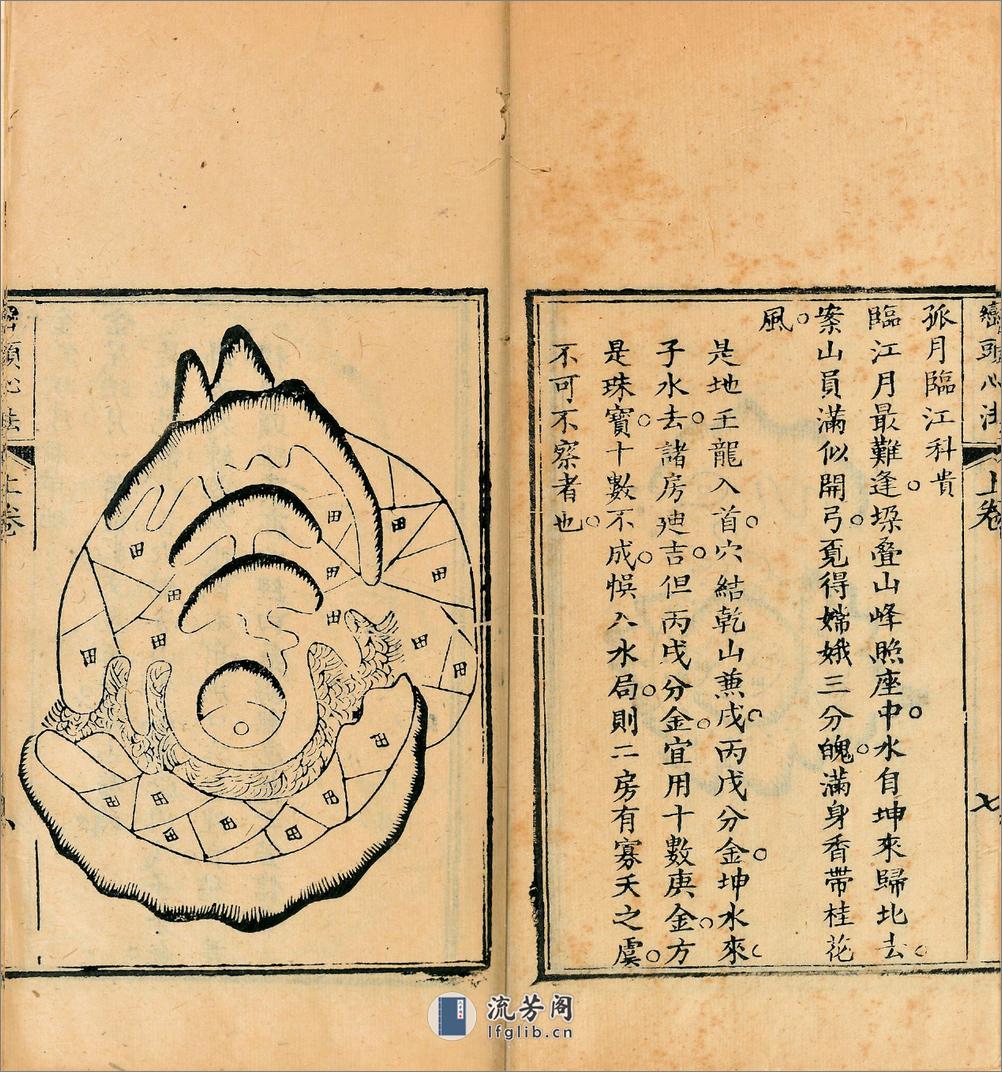 巒頭心法 上卷 七
孤月臨江科貴
臨江月最難逢。垜叠山峰照座中。水自坤來歸北去。
案山員滿似開弓。覔得嫦娥三分魄。滿身香帶桂花
風。
是地壬龍入首。穴結乾山兼戌。丙戌分金。坤水來。
子水去。諸房廸吉。但丙戌分金。宜用十數。庚金方
是珠寶。十數不成。悞入水局。則二房有寡夭之虞。
不可不察者也。
巒頭心法 上卷 八
田
田
田
田
田
田
田
田
田
田
田
田
田
田
流芳阁
lfglib.cn